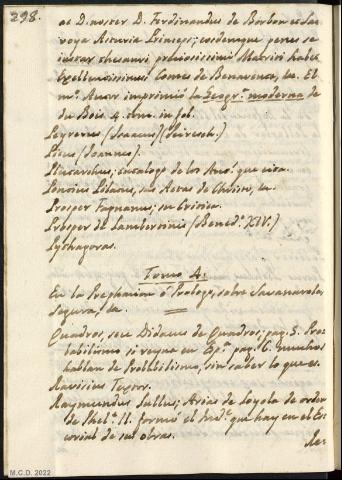 298.
ac D. noster D. Ferdinandus de Borbon et Sa-
voya Asturia Princeps; eosdemque penes se
iustar thesauri pretiosissimi Matriti habet
Excellentissimus Comes de Benavente, &c. El
mo. Autor imprimió la Geogr.a moderna de
du Bois 4. tom. in fol.
Peyrerus (Isaacus) (Peiresch.)
Picus (Joannes).
Plutarchus, catalogo de los Aut.s que cita.
Pontius Pilatus, sus Actas de Christo, &c.
Prosper Fagnanus; su Critica.
Prosper de Lambertinis (Bened.o XIV.)
Pythagoras.
Tomo 4.
En la Prephacion ó Prologo, sobre Savanarola,
Segura, &c.
Quadros, seu Didacus de Quadros; pag. 5. Pro-
babilismo si reyna en Esp.a pag. 6. muchos
hablan de Probabilismo, sin saber lo que es.
Ravisius Textor.
Raymundus Lullus; Arias de Loyola de orden
de Phel.e II. formó el Ind.e que hay en el Es-
corial de sus obras.
M.C.D. 2022